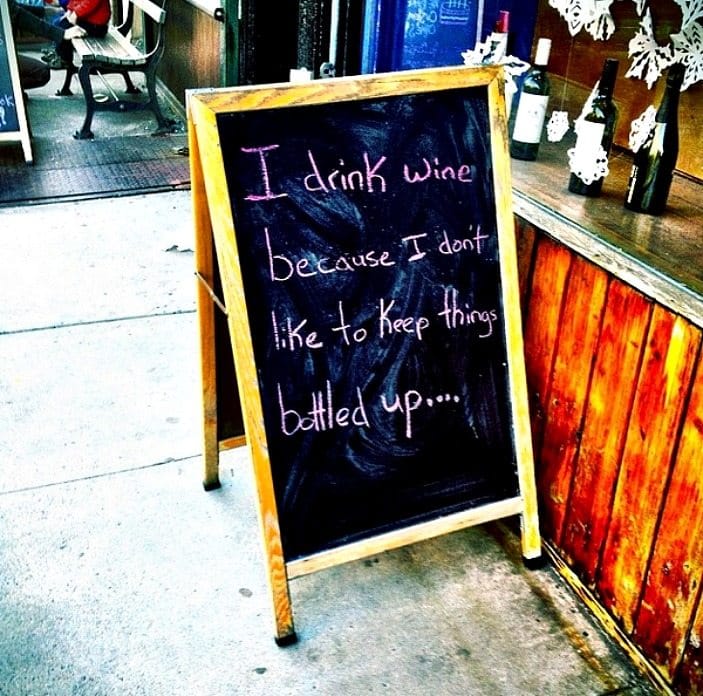 I drink wine
because I don't
like to keep things
bottled up....